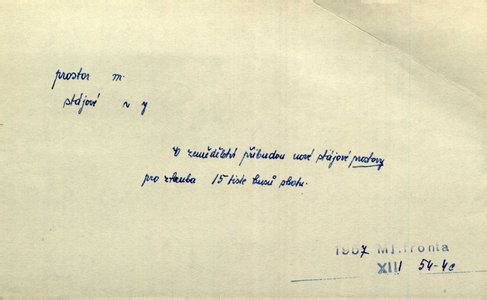 prostor m.
stájové ~ y
V zemědělství přibudou nové stájové prostory
pro zhruba 15 tisíc kusů skotu.
1967 Ml.fronta
XIII 54-4c